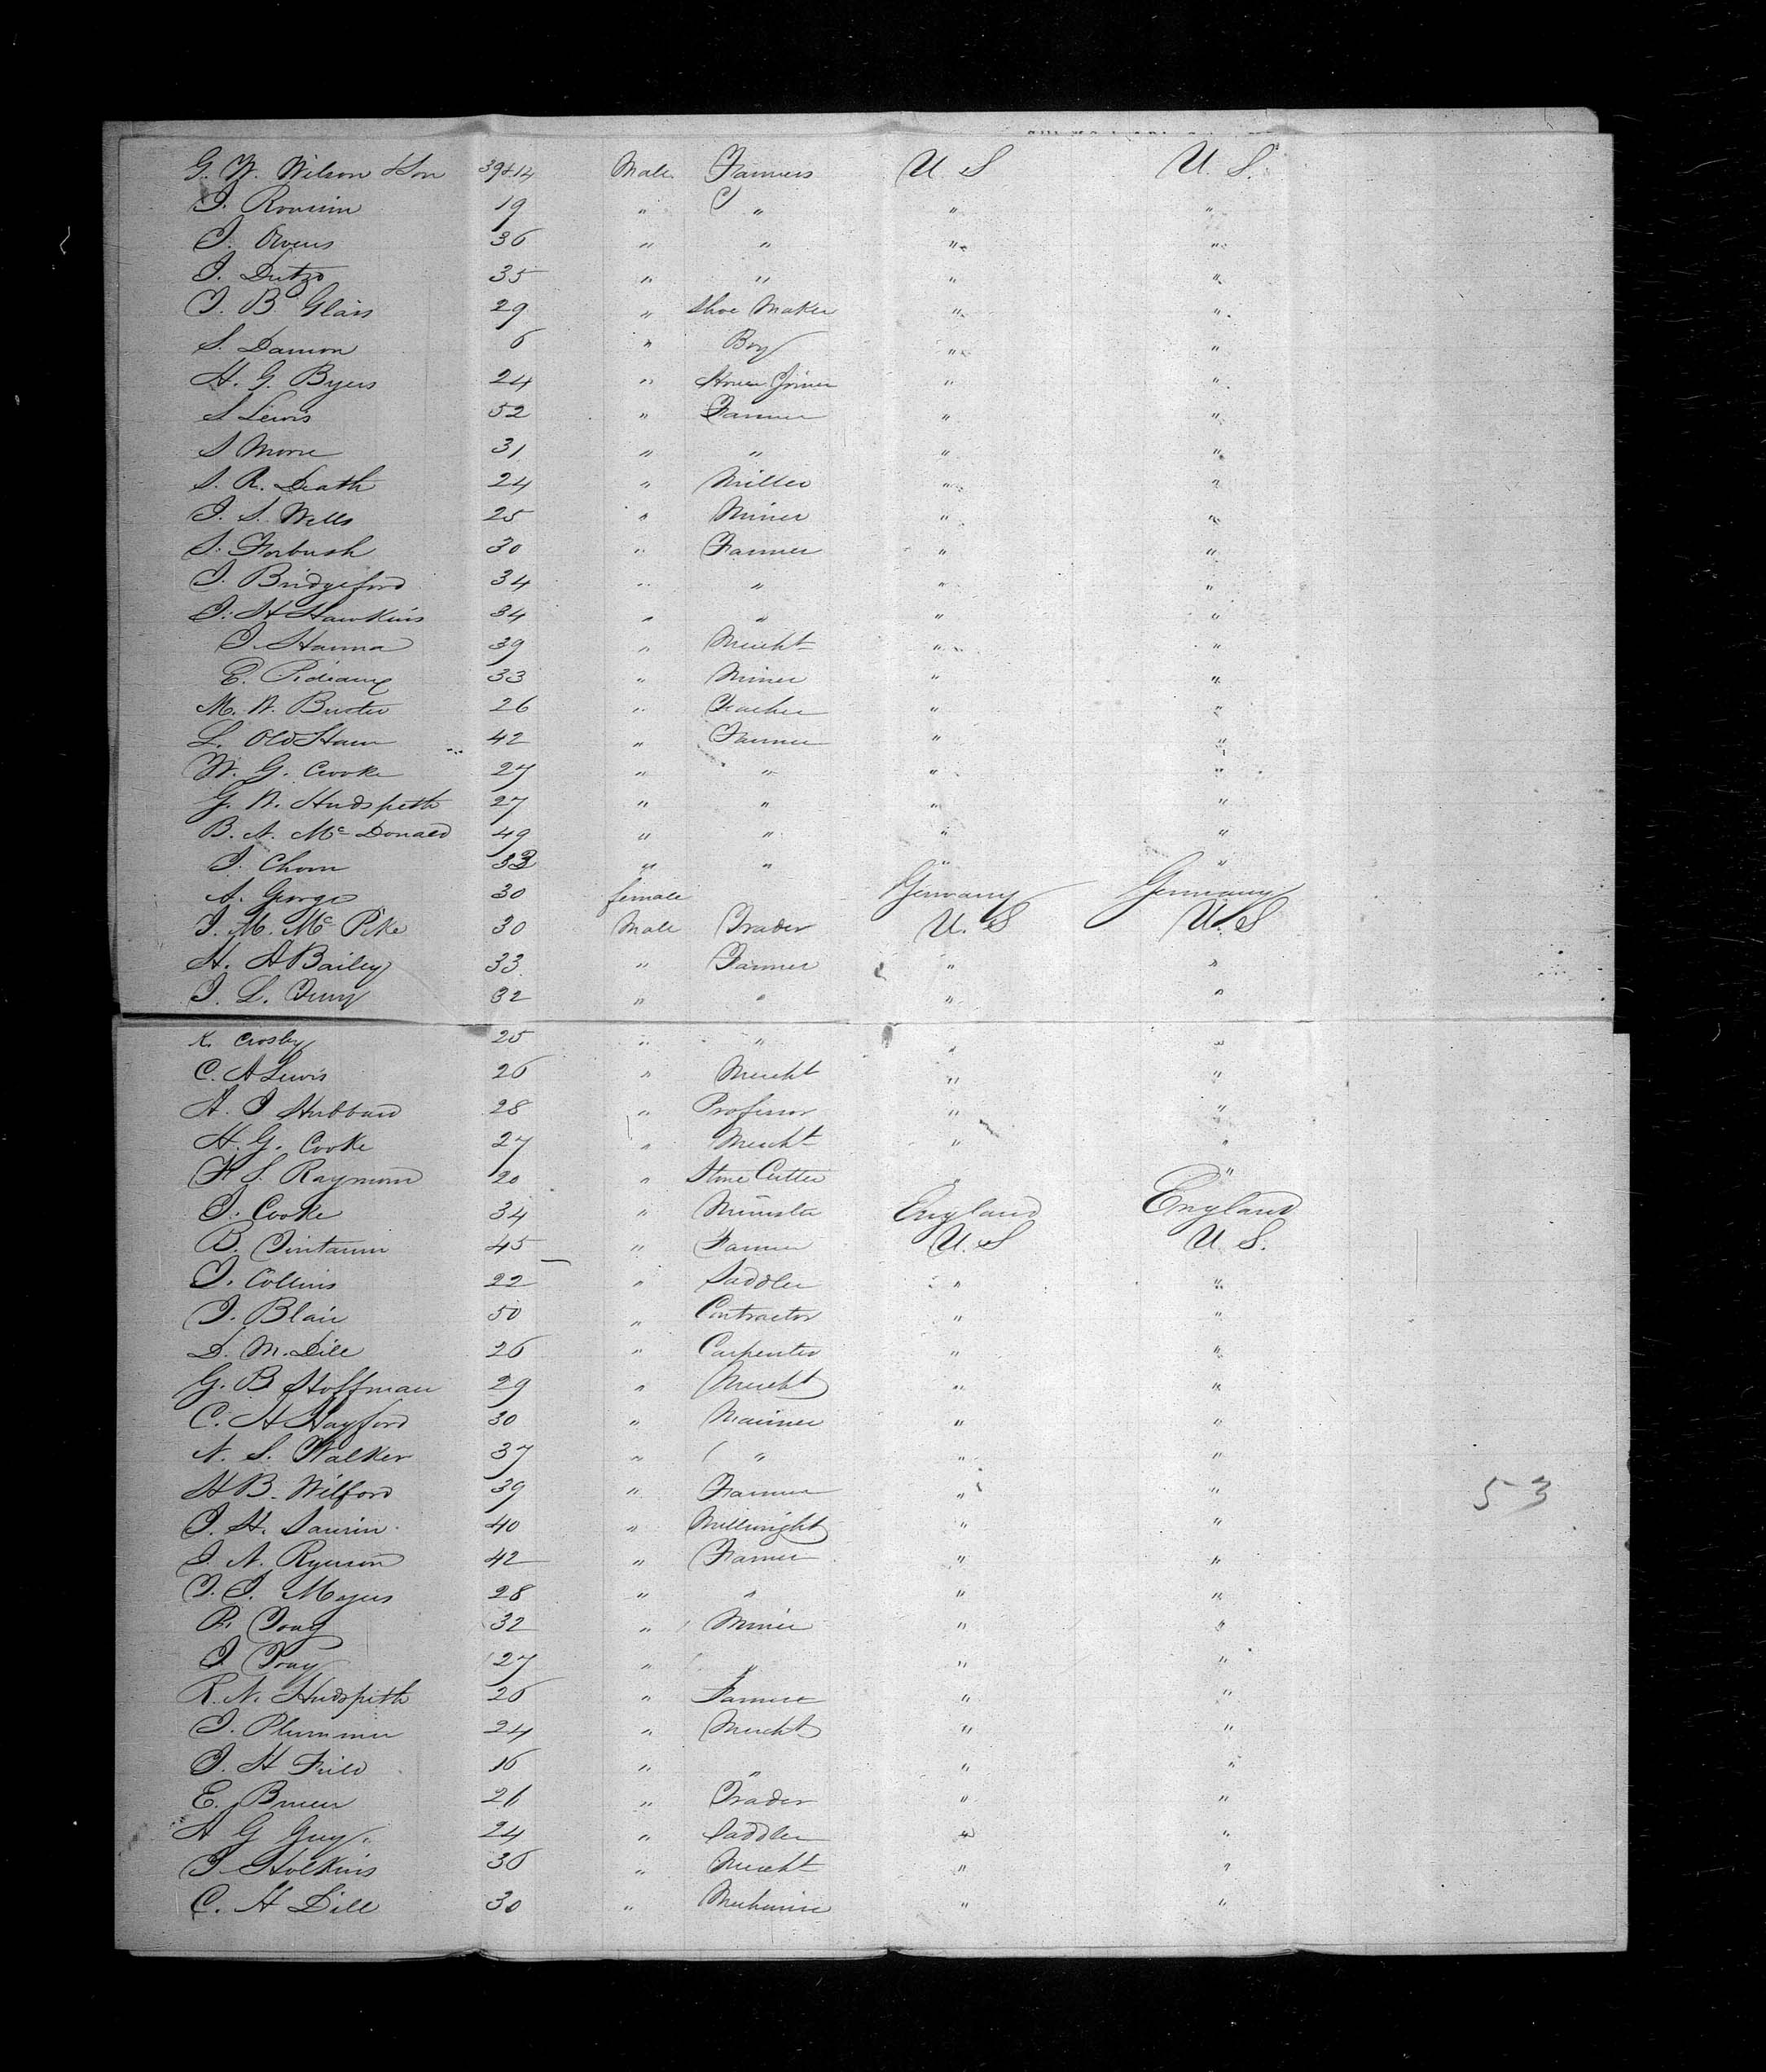 G. W. Wilson & Son 39 & 14 Male Farmers U S U. S.
J. 19 " " " "
J. Owens 36 " " " "
J. Dutzo 35 " " " "
J. B Glass 29 " Shoe Maker " "
S. Damon 6 " Boy " "
H. G. Byers 24 " House Joiner " "
S Lewis 52 " Farmer " "
S Morse 31 " " " "
S. R. Death 24 " Miller " "
J. S. Wells 25 " Miner " "
S. Forbush 30 " Farmer " "
J. Bridgeford 34 " " " "
J. H Hawkins 34 " " " "
J. Hanna 39 " Mercht " "
E. 33 " Miner " "
M. W. Buster 26 " Teacher " "
L. OldHam 42 " Farmer " "
W. G. Cooke 27 " " " "
G. W. Hudspeth 27 " " " "
B. N. Mc Donald 49 " " " "
J. Chorn 33 " " " "
A. George 30 female Germany Germany
J. M. Mc Pike 30 Male Trader U. S U. S
H. A Bailey 33 " Farmer " "
J. L. 32 " " " "
K. Crosby 25 " " " "
C. A Lewis 26 " Mercht " "
A. J Hubbard 28 " Professor " "
H. G. Cooke 27 " Mercht " "
F. S. Raymond 20 " Stone Cutter " "
J. Cooke 34 " Minister England England
B. 45 " Farmer U. S U. S.
J. Collins 22 " Saddler " "
J. Blair 50 " Contractor " "
D. M. Dill 26 " Carpenter " "
G. B Hoffman 29 " Mercht " "
C. H Hayford 30 " Mariner " "
N. S. Walker 37 " " " "
H B. Wilford 39 " Farmer " " 53
J. H. 40 " Millwright " "
J. N. Ryerson 42 " Farmer " "
J. J. Moyers 28 " " " "
R. 32 " Miner " "
J. 27 " " " "
R. N. Hudspith 26 " Farmer " "
J. Plummer 24 " Mercht " "
J. H Field 16 " " " "
E. 21 " Trader " "
A G Guy 24 " Saddler " "
J Holkins 36 " Mercht " "
C. H Dill 30 " Mechanic " "